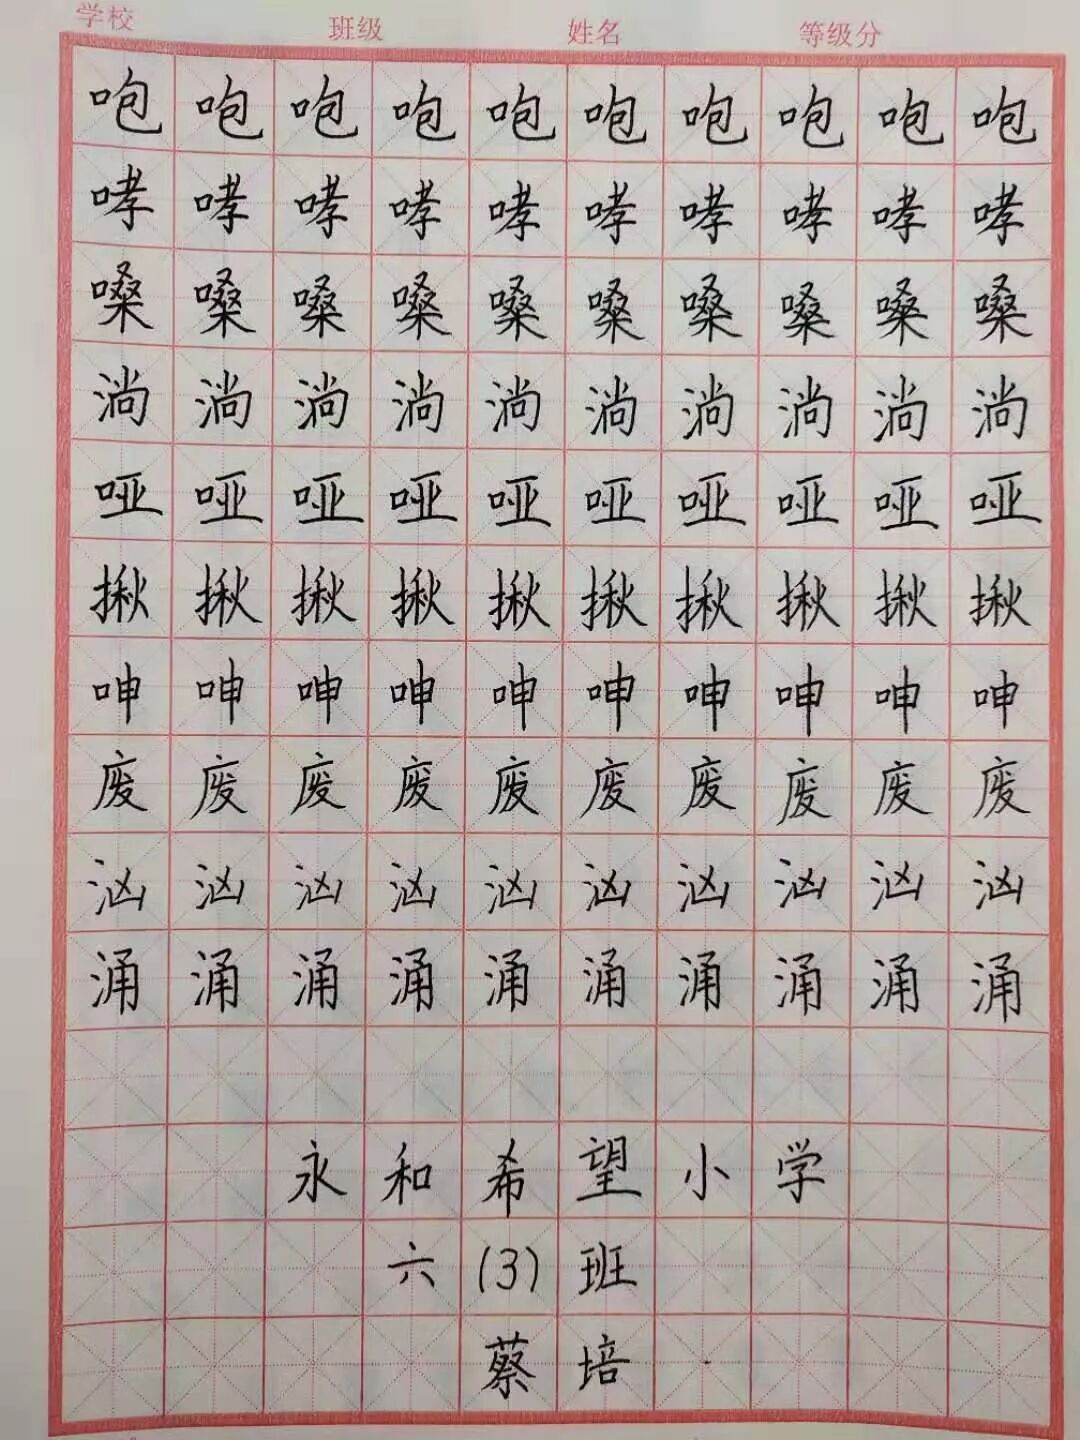 学校 班级 姓名 等级分
咆 咆 咆 咆 咆 咆 咆 咆 咆 咆
哮 哮 哮 哮 哮 哮 哮 哮 哮 哮
嗓 嗓 嗓 嗓 嗓 嗓 嗓 嗓 嗓 嗓
淌 淌 淌 淌 淌 淌 淌 淌 淌 淌
哑 哑 哑 哑 哑 哑 哑 哑 哑 哑
揪 揪 揪 揪 揪 揪 揪 揪 揪 揪
呻 呻 呻 呻 呻 呻 呻 呻 呻 呻
废 废 废 废 废 废 废 废 废 废
汹 汹 汹 汹 汹 汹 汹 汹 汹 汹
涌 涌 涌 涌 涌 涌 涌 涌 涌 涌
永 和 希 望 小 学
六 (3) 班
蔡 培